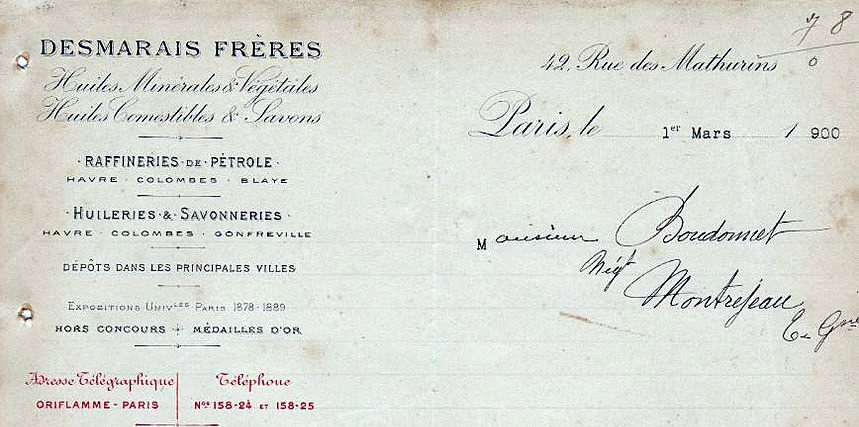 7 8
0
DESMARAIS FRÈRES
Huiles Minérales & Végétales
Huiles Comestibles & Savons
· RAFFINERIES · DE · PÉTROLE ·
HAVRE · COLOMBES · BLAYE
· HUILERIES · & · SAVONNERIES ·
HAVRE · COLOMBES · GONFREVILLE
DÉPÔTS DANS LES PRINCIPALES VILLES
EXPOSITIONS UNIVLES PARIS 1878-1889
HORS CONCOURS MÉDAILLES D'OR
Adresse Télégraphique
ORIFLAMME - PARIS
Téléphone
Nos 158-24 ET 158-25
42, Rue des Mathurins
Paris, le 1er Mars 1900
Monsieur Boudonnet
Négt
Montrejeau
Gne